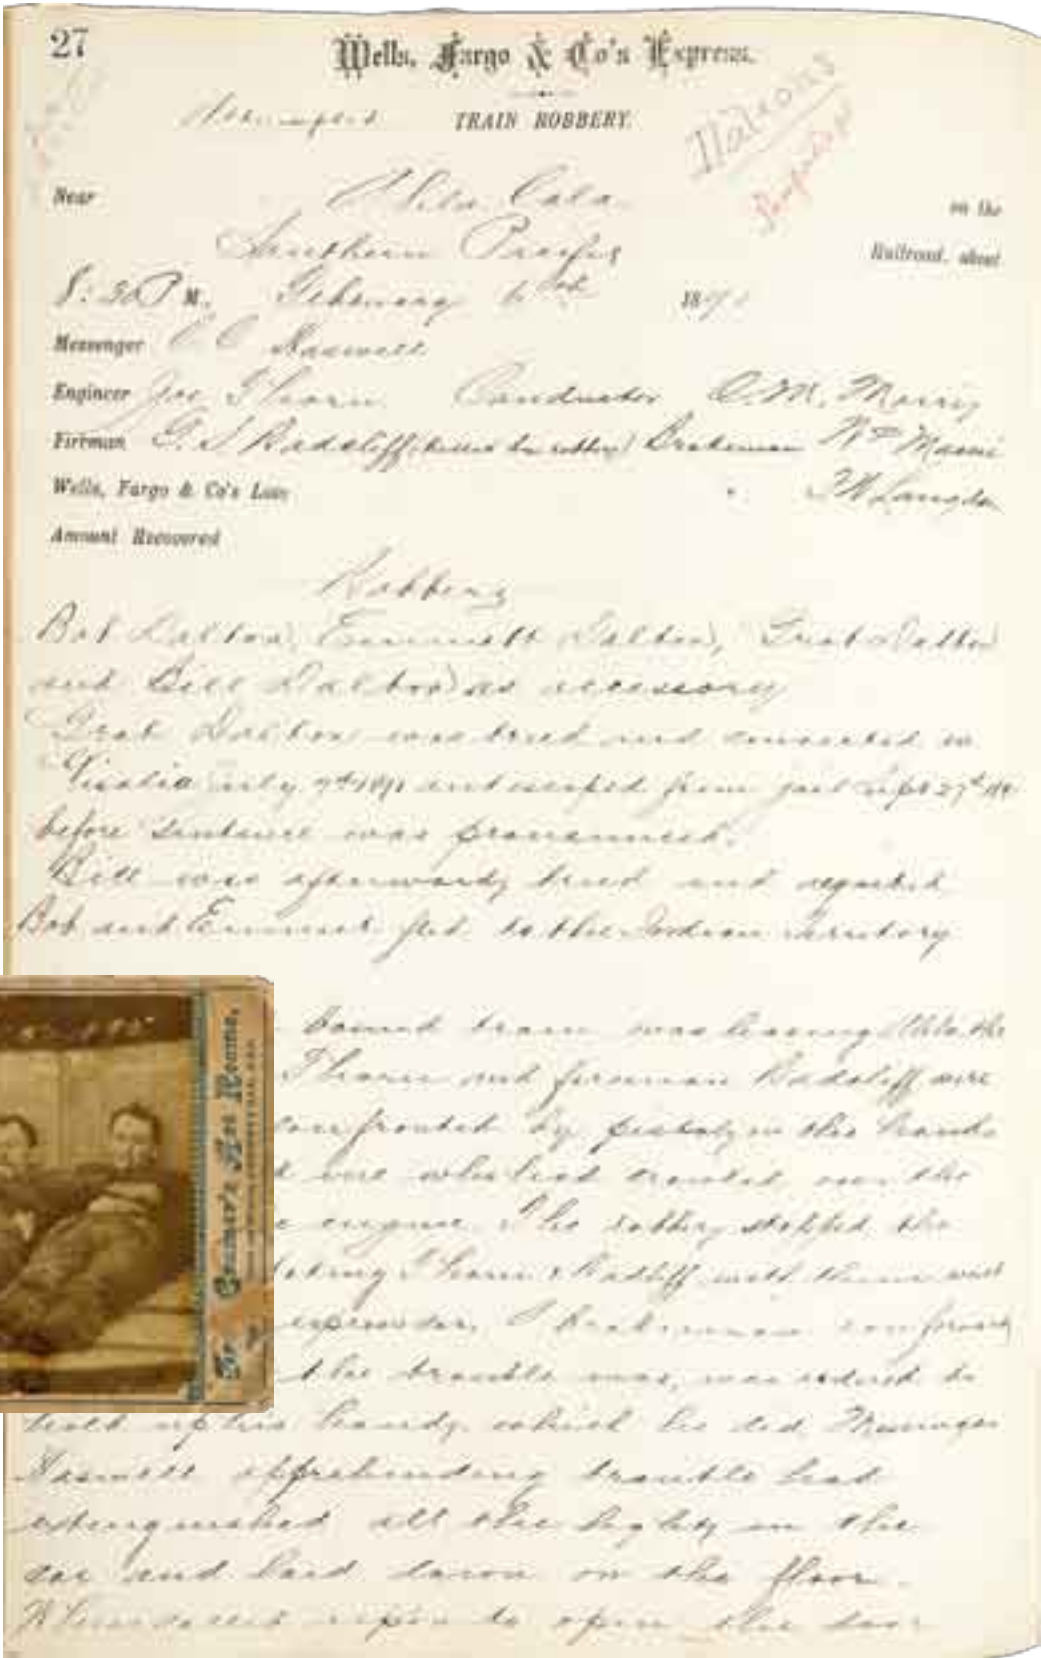 27
Wells, Fargo & Co's Express.
Attempted TRAIN ROBBERY.
Near Alila Cala on the
Southern Pacific Railroad, about
8:30 P M. February 6th 189
Messenger C C Haswell
Engineer Joe Thorn Conductor O.M. Morris
Fireman G. S Radcliff (killed by robbers) Brakeman
Wells, Fargo & Co's Loss " Langdon
Amount Recovered
Robbers
Bob Dalton, Emmett Dalton, Grat Dalton
and Bill Dalton as accessory
Grat Dalton was tried and convicted in
Visalia July 7th 1891 and escaped from jail Sept 27th
before sentence was pronounced.
Bill was afterwards tried and acquitted
Bob and Emmet fled to the Indian Territory
bound train was leaving Alila the
Thorn and fireman Radcliff were
confronted by pistols in the hands
who had crawled over the
engine. The robbers stopped the
taking Thorn & Radliff with them went
express car. Brakeman
the trouble was, was ordered to
hold up his hands, which he did Messenger
Haswell apprehending trouble had
extinguished all the lights in the
car and laid down on the floor.
When called upon to open the door